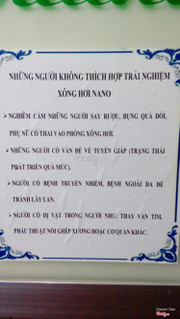 NHỮNG NGƯỜI KHÔNG THÍCH HỢP TRẢI NGHIỆM
XÔNG HƠI NANO
➤ NGHIÊM CẤM NHỮNG NGƯỜI SAY RƯỢU, BỤNG QUÁ ĐÓI,
PHỤ NỮ CÓ THAI VÀO PHÒNG XÔNG HƠI.
➤ NHỮNG NGƯỜI CÓ VẤN ĐỀ VỀ TUYẾN GIÁP (TRẠNG THÁI
PHÁT TRIỂN QUÁ MỨC).
➤ NGƯỜI CÓ BỆNH TRUYỀN NHIỄM, BỆNH NGOÀI DA ĐỂ
TRÁNH LÂY LAN.
➤ NGƯỜI CÓ DỊ VẬT TRONG NGƯỜI NHƯ: THAY VAN TIM,
PHẪU THUẬT NỐI GHÉP XƯƠNG HOẶC CƠ QUAN KHÁC.